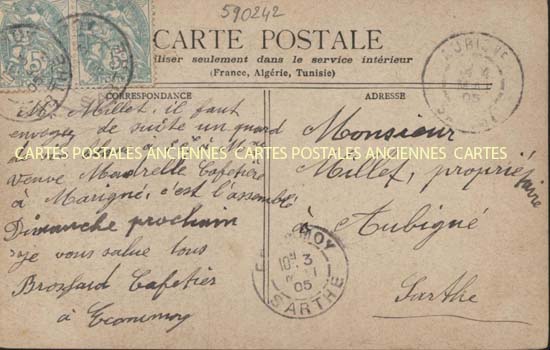 590242
CARTE POSTALE
iliser seulement dans le service intérieur
(France, Algérie, Tunisie)
CORRESPONDANCE
ADRESSE
M. Millet, il faut
envoyer de suite un quard
CARTES POSTALES ANCIENNES CARTES POSTALES ANCIENNES CARTES
veuve Cafetière
à Marigné, c'est l'assemblé
Dimanche prochain
je vous salue tous
Brossard Cafetier
à Ecommoy
Monsieur
Millet, propriétaire
à Aubigné
Sarthe
MOY
3
05
SARTHE
05